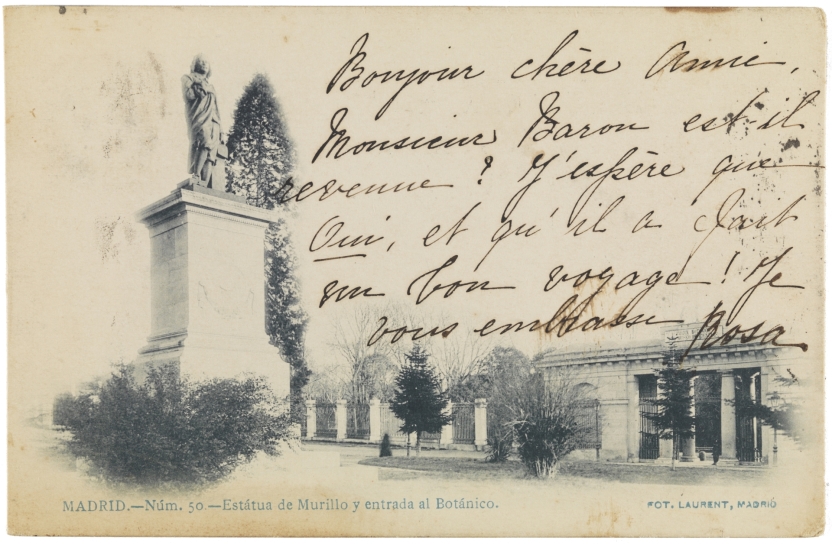 Bonjour chère Annie,
Monsieur Baron est-il
revenue? J'espère que
Oui, et qu'il a fait
un bon voyage! Je
vous embrasse Rosa
MADRID.—Núm. 50.—Estátua de Murillo y entrada al Botánico.
FOT. LAURENT, MADRID